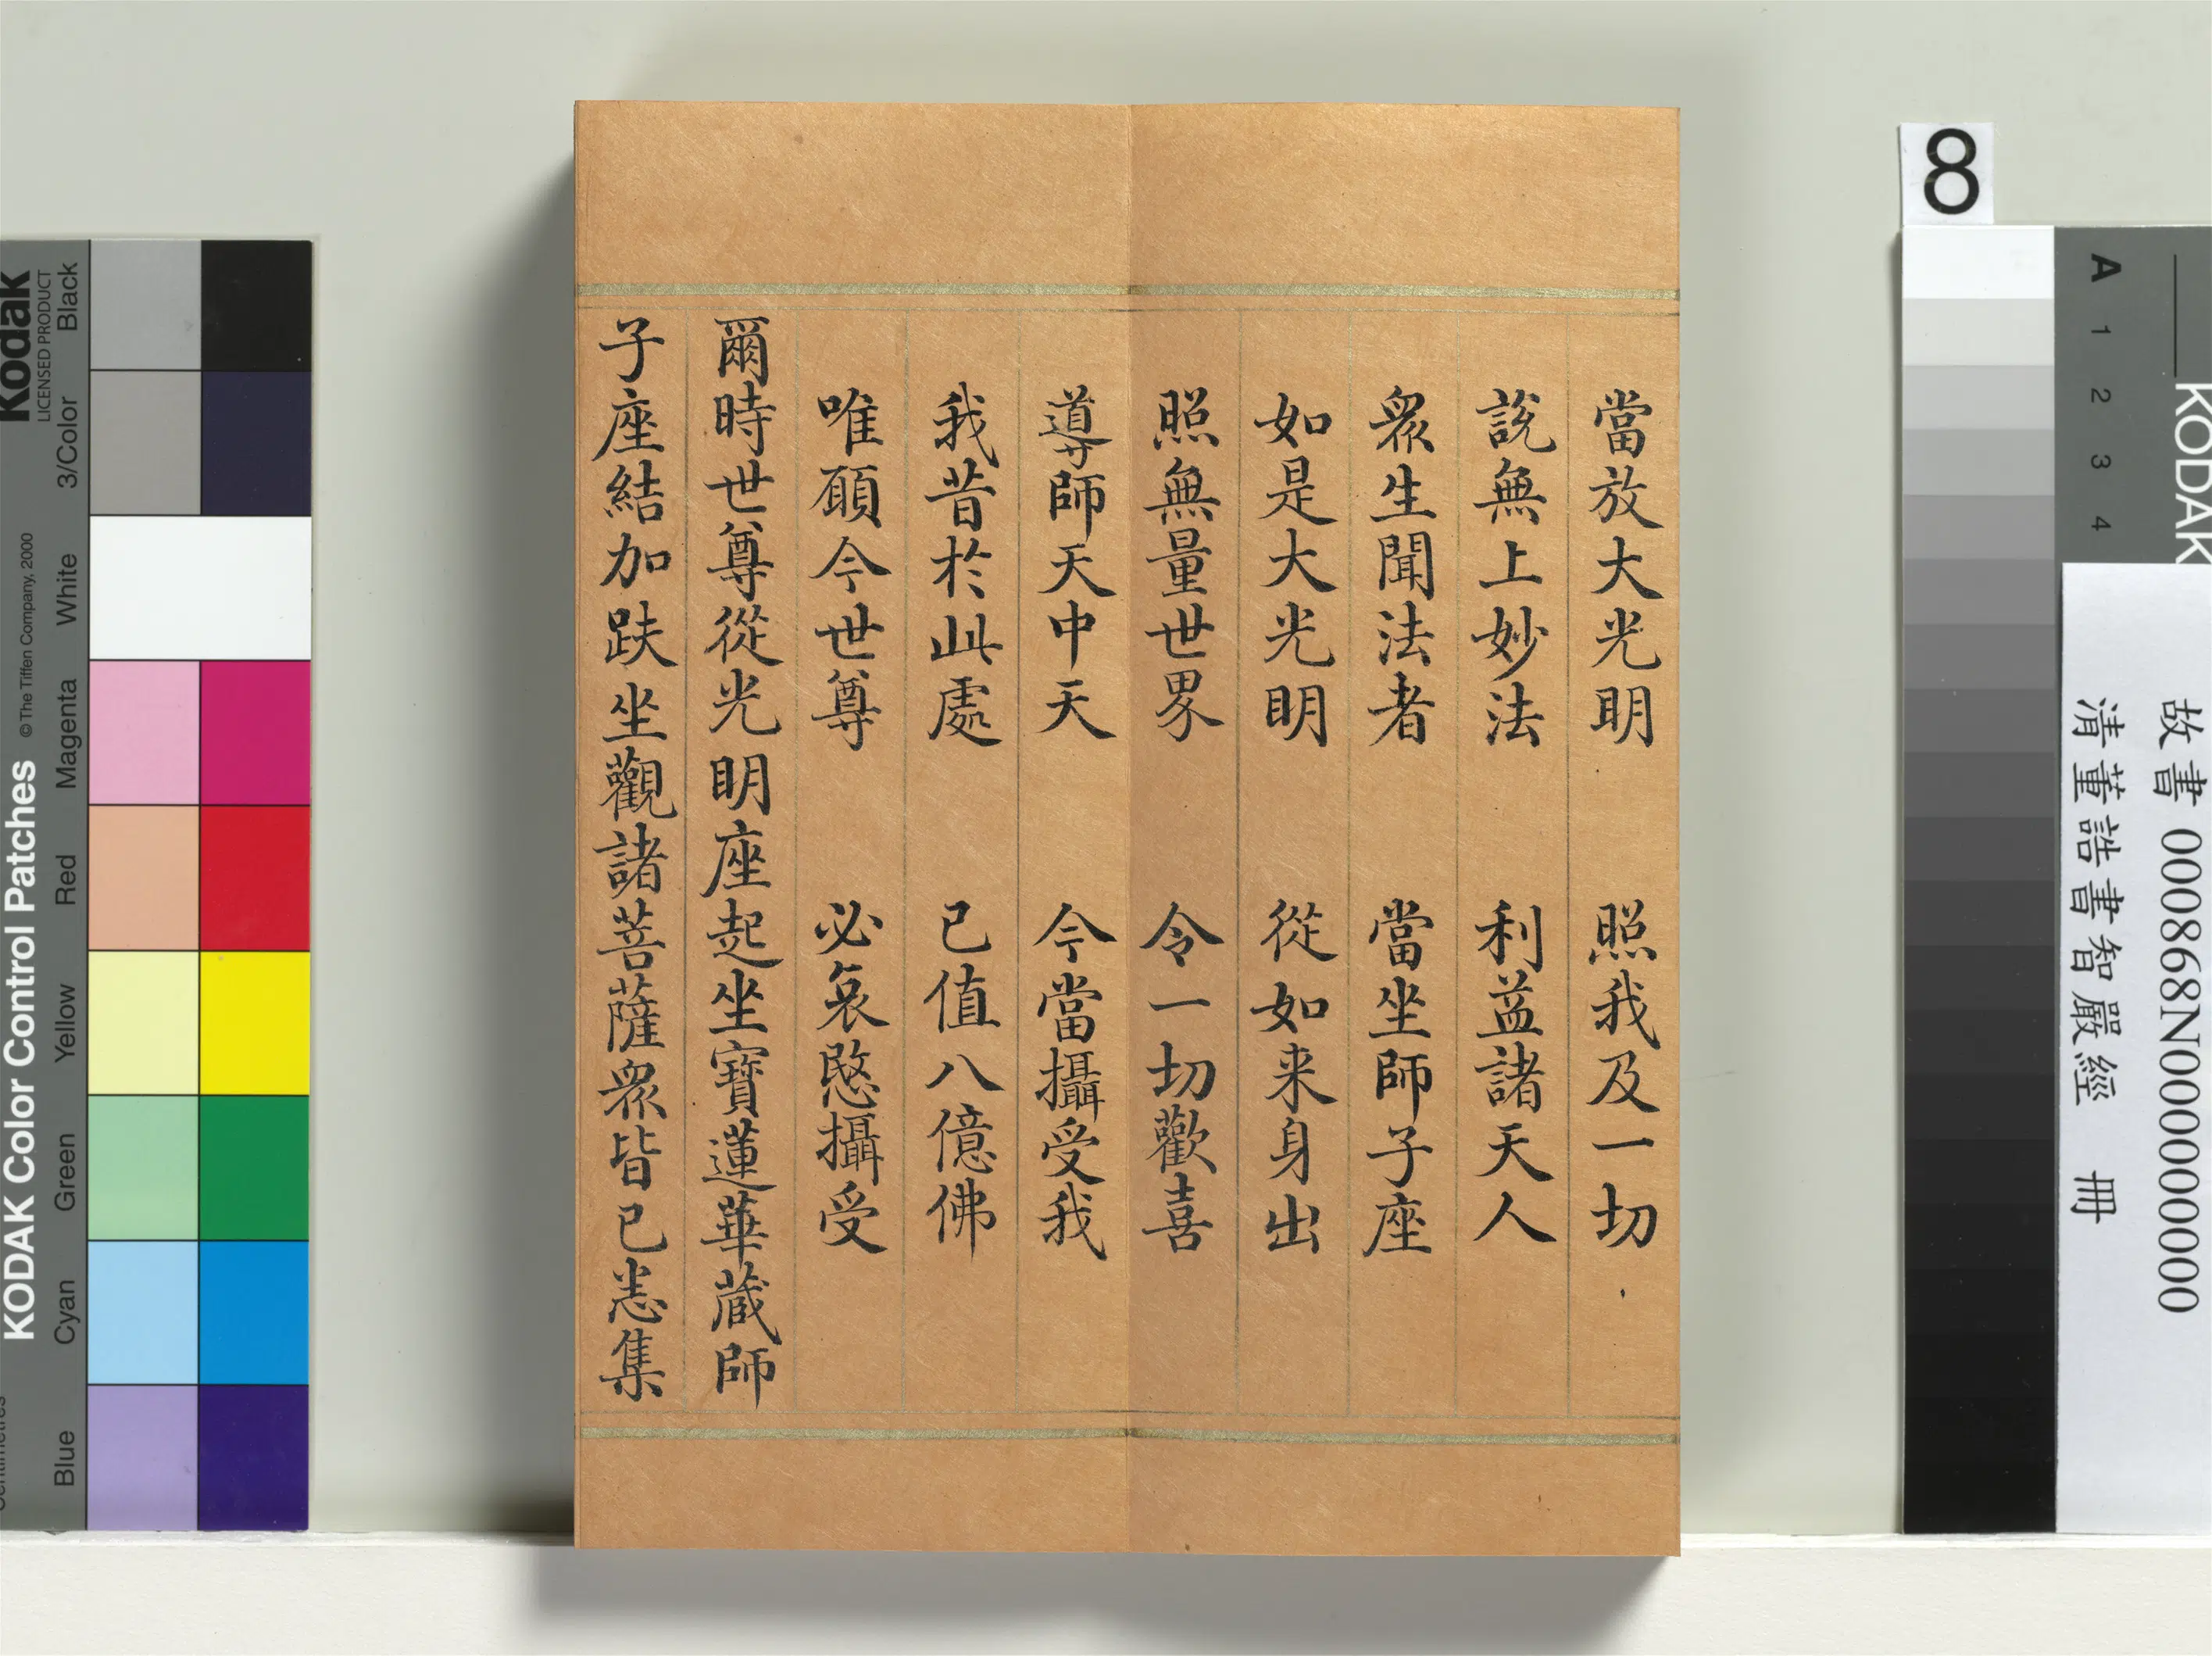 當放大光明 照我及一切
說無上妙法 利益諸天人
衆生聞法者 當坐師子座
如是大光明 從如来身出
照無量世界 令一切歡喜
導師天中天 今當攝受我
我昔於此處 已值八億佛
唯願今世尊 必哀愍攝受
爾時世尊從光明座起坐寶蓮華蔵師
子座結加趺坐觀諸菩薩衆皆已恙集
8
A 1 2 3 4
KODAK
故書 000868N000000000
清董誥書智嚴經 冊
Kodak
LICENSED PRODUCT
KODAK Color Control Patches
©The Tiffen Company, 2000
Blue Cyan Green Yellow Red Magenta White 3/Color Black